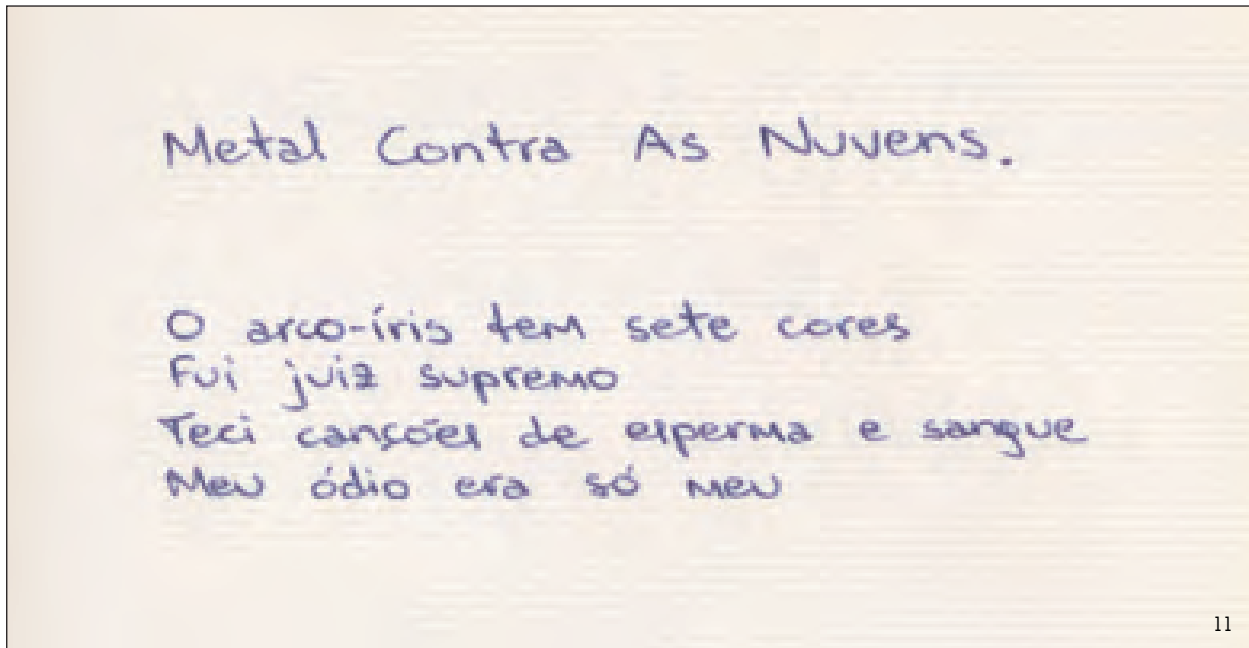 Metal Contra As Nuvens.
O arco-íris tem sete cores
Fui juiz supremo
Teci canções de esperma e sangue
Meu ódio era só meu
11